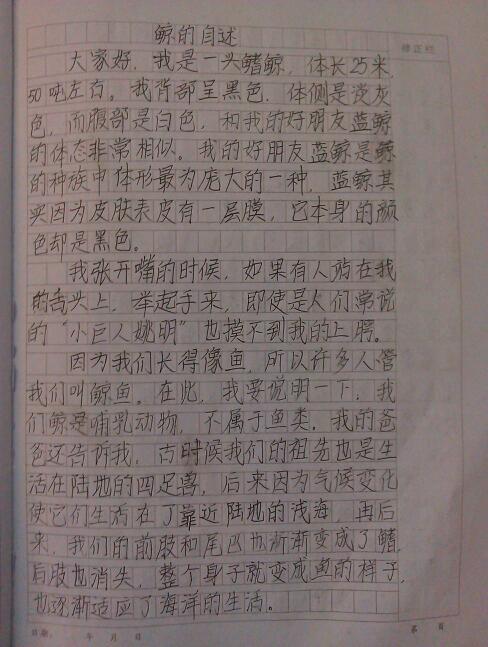 鲸的自述
大家好，我是一头鳍鲸，体长25米，
50吨左右。我背部呈黑色，体侧是淡灰
色，而腹部是白色，和我的好朋友蓝鲸
的体态非常相似。我的好朋友蓝鲸是鲸
的种族中体形最为庞大的一种，蓝鲸其
实因为皮肤表皮有一层膜，它本身的颜
色却是黑色。
我张开嘴的时候，如果有人站在我
的舌头上，举起手来，即使是人们常说
的“小巨人姚明”也摸不到我的上腭。
因为我们长得像鱼，所以许多人管
我们叫鲸鱼。在此，我要说明一下，我
们鲸是哺乳动物，不属于鱼类。我的爸
爸还告诉我，古时候我们的祖先也是生
活在陆地的四足兽，后来因为气候变化
使它们生活在了靠近陆地的浅海，再后
来，我们的前肢和尾巴也渐渐变成了鳍，
后肢也消失，整个身子就变成鱼的样子，
也逐渐适应了海洋的生活。
修正栏
日期： 年 月 日 第 页